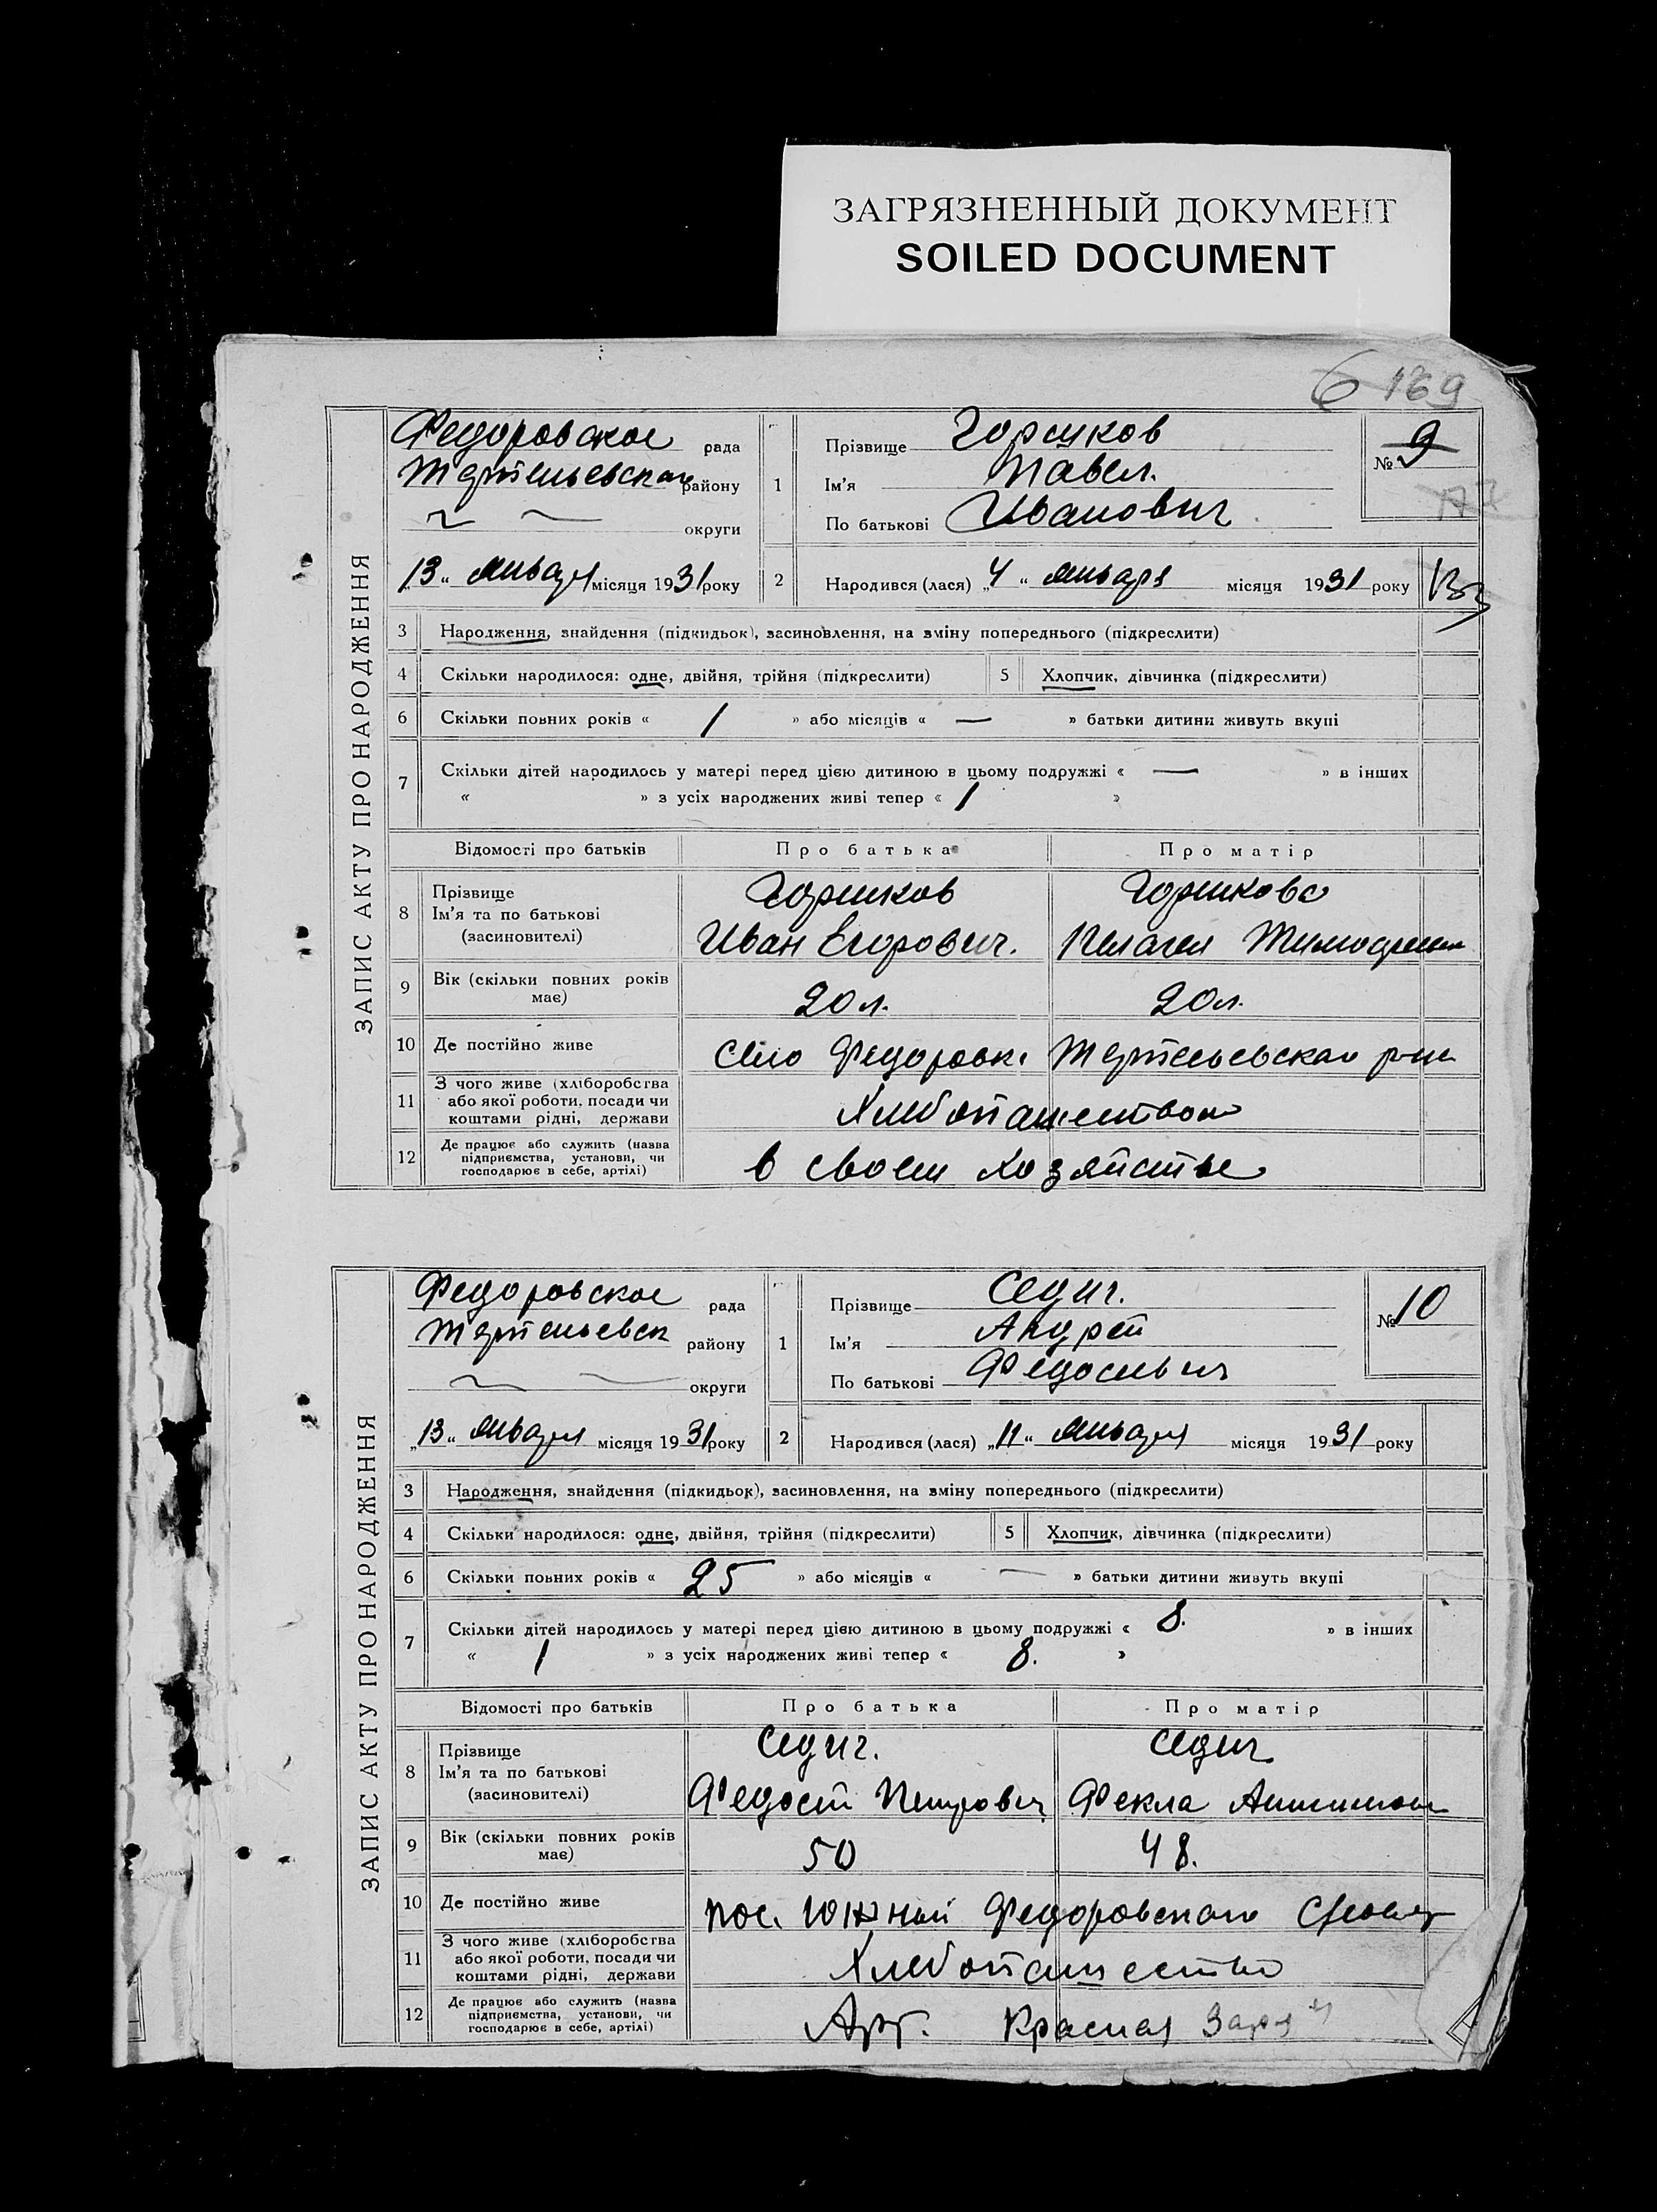 ЗАГРЯЗНЕННЫЙ ДОКУМЕНТ
SOILED DOCUMENT
6 169
ЗАПИС АКТУ ПРО НАРОДЖЕННЯ
Федоровское рада
району
округи
"13" января місяця 1931 року
1 Прізвище Горшков
Ім'я Павел.
По батькові Иванович
№ 9
2 Народився (лася) "4" января місяця 1931 року
3 Народження, знайдення (підкидьок), засиновлення, на зміну попереднього (підкреслити)
4 Скільки народилося: одне, двійня, трійня (підкреслити) 5 Хлопчик, дівчинка (підкреслити)
6 Скільки повних років « 1 » або місяців « — » батьки дитини живуть вкупі
7 Скільки дітей народилось у матері перед цією дитиною в цьому подружжі « — » в інших
« » з усіх народжених живі тепер « 1 »
Відомості про батьків Про батька Про матір
8 Прізвище Горшков Горшкова
Ім'я та по батькові
(засиновителі) Иван Егорович. Пелагея
9 Вік (скільки повних років має) 20 л. 20 л.
10 Де постійно живе село Федоровк
11 З чого живе (хліборобства
або якої роботи, посади чи
коштами рідні, держави Хлебопашеством
12 Де працює або служить (назва
підприємства, установи, чи
господарює в себе, артілі) в своем хозяйстве
ЗАПИС АКТУ ПРО НАРОДЖЕННЯ
Федоровское рада
району
округи
"13" января місяця 1931 року
1 Прізвище Седич.
Ім'я Андрей
По батькові Федосьевич
№ 10
2 Народився (лася) "11" января місяця 1931 року
3 Народження, знайдення (підкидьок), засиновлення, на зміну попереднього (підкреслити)
4 Скільки народилося: одне, двійня, трійня (підкреслити) 5 Хлопчик, дівчинка (підкреслити)
6 Скільки повних років « 25 » або місяців « — » батьки дитини живуть вкупі
7 Скільки дітей народилось у матері перед цією дитиною в цьому подружжі « 8. » в інших
« 1 » з усіх народжених живі тепер « 8. »
Відомості про батьків Про батька Про матір
8 Прізвище Седич. Седич
Ім'я та по батькові
(засиновителі) Федосей Петрович Фекла
9 Вік (скільки повних років має) 50 48.
10 Де постійно живе пос. Южный Федоровского
11 З чого живе (хліборобства
або якої роботи, посади чи
коштами рідні, держави Хлебопашество
12 Де працює або служить (назва
підприємства, установи, чи
господарює в себе, артілі) Арт. Красная Заря"